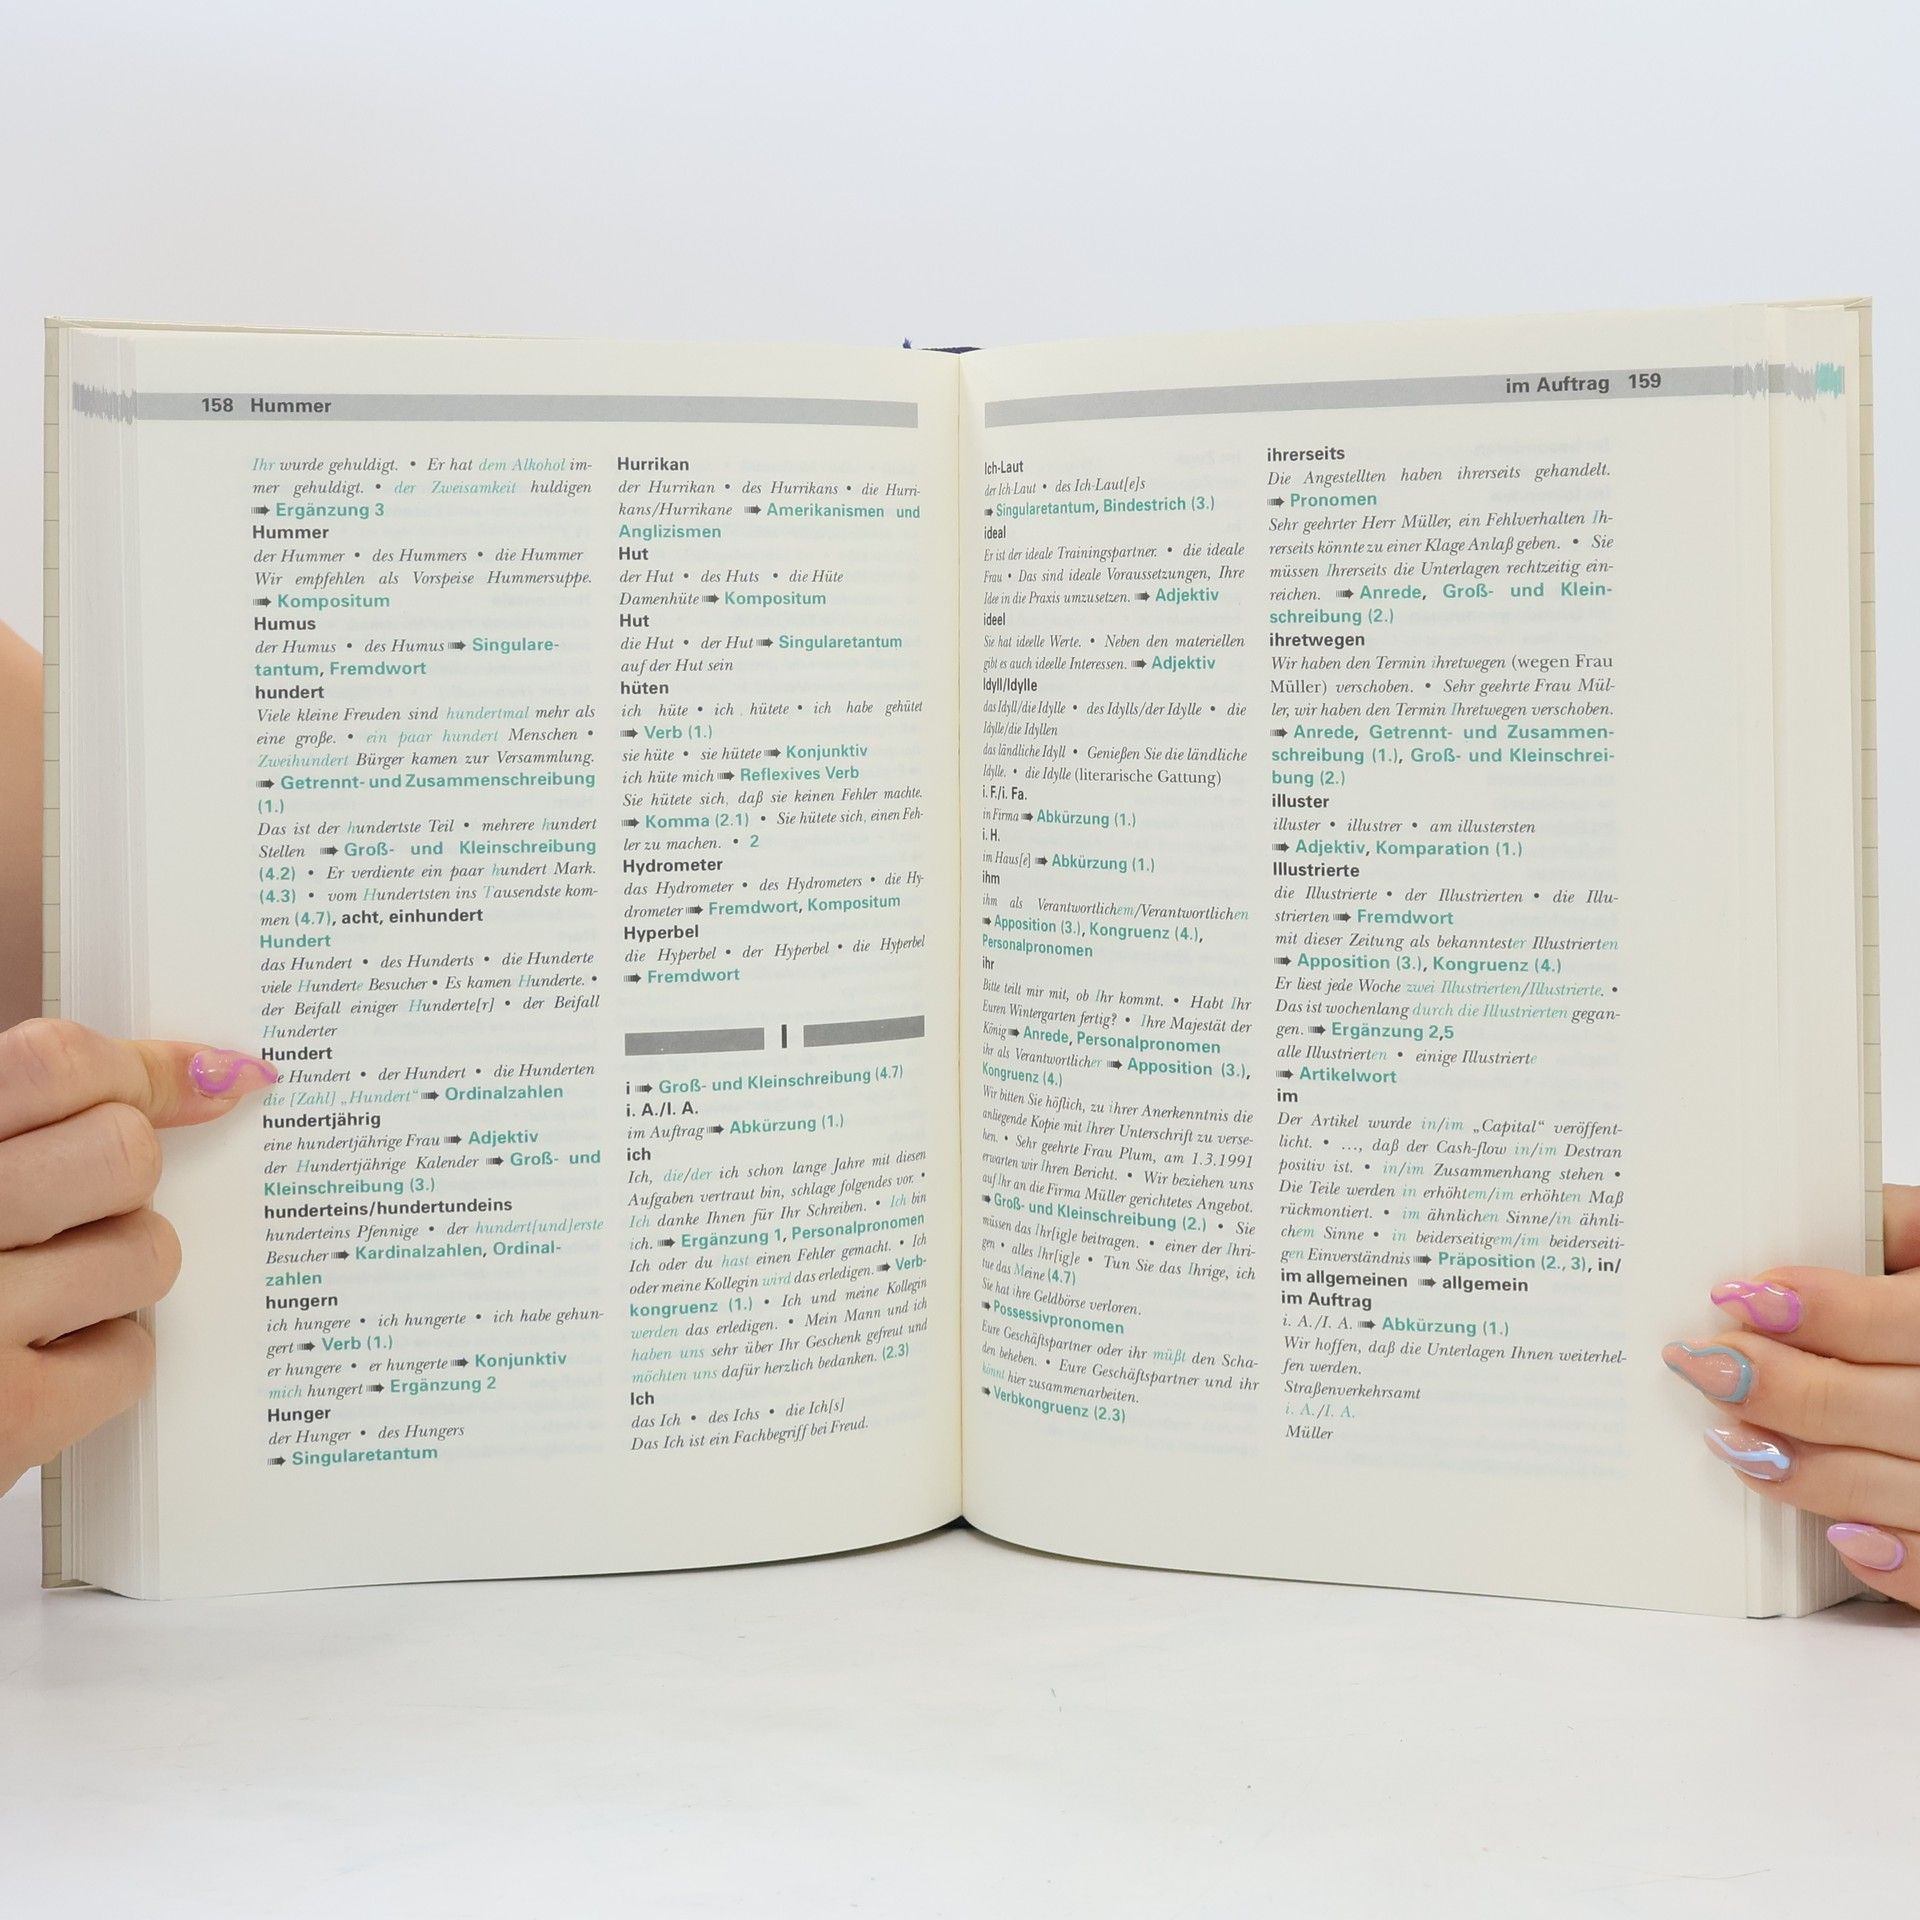 158 Hummer
Ihr wurde gehuldigt. • Er hat dem Alkohol im-
mer gehuldigt. • der Zweisamkeit huldigen
➠ Ergänzung 3
Hummer
der Hummer • des Hummers • die Hummer
Wir empfehlen als Vorspeise Hummersuppe.
➠ Kompositum
Humus
der Humus • des Humus ➠ Singulare-
tantum, Fremdwort
hundert
Viele kleine Freuden sind hundertmal mehr als
eine große. • ein paar hundert Menschen •
Zweihundert Bürger kamen zur Versammlung.
➠ Getrennt- und Zusammenschreibung
(1.)
Das ist der hundertste Teil • mehrere hundert
Stellen ➠ Groß- und Kleinschreibung
(4.2) • Er verdiente ein paar hundert Mark.
(4.3) • vom Hundertsten ins Tausendste kom-
men (4.7), acht, einhundert
Hundert
das Hundert • des Hunderts • die Hunderte
viele Hunderte Besucher • Es kamen Hunderte. •
der Beifall einiger Hunderte[r] • der Beifall
Hunderter
Hundert
Hundert • der Hundert • die Hunderten
die [Zahl] „Hundert“ ➠ Ordinalzahlen
hundertjährig
eine hundertjährige Frau ➠ Adjektiv
der Hundertjährige Kalender ➠ Groß- und
Kleinschreibung (3.)
hunderteins/hundertundeins
hunderteins Pfennige • der hundert[und]erste
Besucher ➠ Kardinalzahlen, Ordinal-
zahlen
hungern
ich hungere • ich hungerte • ich habe gehun-
gert ➠ Verb (1.)
er hungere • er hungerte ➠ Konjunktiv
mich hungert ➠ Ergänzung 2
Hunger
der Hunger • des Hungers
➠ Singularetantum
Hurrikan
der Hurrikan • des Hurrikans • die Hurri-
kans/Hurrikane ➠ Amerikanismen und
Anglizismen
Hut
der Hut • des Huts • die Hüte
Damenhüte ➠ Kompositum
Hut
die Hut • der Hut ➠ Singularetantum
auf der Hut sein
hüten
ich hüte • ich hütete • ich habe gehütet
➠ Verb (1.)
sie hüte • sie hütete ➠ Konjunktiv
ich hüte mich ➠ Reflexives Verb
Sie hütete sich, daß sie keinen Fehler machte.
➠ Komma (2.1) • Sie hütete sich, einen Feh-
ler zu machen. • 2
Hydrometer
das Hydrometer • des Hydrometers • die Hy-
drometer ➠ Fremdwort, Kompositum
Hyperbel
die Hyperbel • der Hyperbel • die Hyperbel
➠ Fremdwort
I
i ➠ Groß- und Kleinschreibung (4.7)
i. A./I. A.
im Auftrag ➠ Abkürzung (1.)
ich
Ich, die/der ich schon lange Jahre mit diesen
Aufgaben vertraut bin, schlage folgendes vor. •
Ich danke Ihnen für Ihr Schreiben. • Ich bin
ich. ➠ Ergänzung 1, Personalpronomen
Ich oder du hast einen Fehler gemacht. • Ich
oder meine Kollegin wird das erledigen. ➠ Verb-
kongruenz (1.) • Ich und meine Kollegin
werden das erledigen. • Mein Mann und ich
haben uns sehr über Ihr Geschenk gefreut und
möchten uns dafür herzlich bedanken. (2.3)
Ich
das Ich • des Ichs • die Ich[s]
Das Ich ist ein Fachbegriff bei Freud.
im Auftrag 159
Ich-Laut
der Ich-Laut • des Ich-Laut[e]s
➠ Singularetantum, Bindestrich (3.)
ideal
Er ist der ideale Trainingspartner. • die ideale
Frau • Das sind ideale Voraussetzungen, Ihre
Idee in die Praxis umzusetzen. ➠ Adjektiv
ideel
Sie hat ideelle Werte. • Neben den materiellen
gibt es auch ideelle Interessen. ➠ Adjektiv
Idyll/Idylle
das Idyll/die Idylle • des Idylls/der Idylle • die
Idylle/die Idyllen
das ländliche Idyll • Genießen Sie die ländliche
Idylle. • die Idylle (literarische Gattung)
i. F./i. Fa.
in Firma ➠ Abkürzung (1.)
i. H.
im Haus[e] ➠ Abkürzung (1.)
ihm
ihm als Verantwortlichem/Verantwortlichen
➠ Apposition (3.), Kongruenz (4.),
Personalpronomen
ihr
Bitte teilt mir mit, ob Ihr kommt. • Habt Ihr
Euren Wintergarten fertig? • Ihre Majestät der
König ➠ Anrede, Personalpronomen
ihr als Verantwortlicher ➠ Apposition (3.),
Kongruenz (4.)
Wir bitten Sie höflich, zu ihrer Anerkenntnis die
anliegende Kopie mit Ihrer Unterschrift zu verse-
hen. • Sehr geehrte Frau Plum, am 1.3.1991
erwarten wir Ihren Bericht. • Wir beziehen uns
auf Ihr an die Firma Müller gerichtetes Angebot.
➠ Groß- und Kleinschreibung (2.) • Sie
müssen das Ihr[ig]e beitragen. • einer der Ihri-
gen • alles Ihr[ig]e • Tun Sie das Ihrige, ich
tue das Meine (4.7)
Sie hat ihre Geldbörse verloren.
➠ Possessivpronomen
Eure Geschäftspartner oder ihr müßt den Scha-
den beheben. • Eure Geschäftspartner und ihr
könnt hier zusammenarbeiten.
➠ Verbkongruenz (2.3)
ihrerseits
Die Angestellten haben ihrerseits gehandelt.
➠ Pronomen
Sehr geehrter Herr Müller, ein Fehlverhalten Ih-
rerseits könnte zu einer Klage Anlaß geben. • Sie
müssen Ihrerseits die Unterlagen rechtzeitig ein-
reichen. ➠ Anrede, Groß- und Klein-
schreibung (2.)
ihretwegen
Wir haben den Termin ihretwegen (wegen Frau
Müller) verschoben. • Sehr geehrte Frau Mül-
ler, wir haben den Termin Ihretwegen verschoben.
➠ Anrede, Getrennt- und Zusammen-
schreibung (1.), Groß- und Kleinschrei-
bung (2.)
illuster
illuster • illustrer • am illustersten
➠ Adjektiv, Komparation (1.)
Illustrierte
die Illustrierte • der Illustrierten • die Illu-
strierten ➠ Fremdwort
mit dieser Zeitung als bekanntester Illustrierten
➠ Apposition (3.), Kongruenz (4.)
Er liest jede Woche zwei Illustrierten/Illustrierte. •
Das ist wochenlang durch die Illustrierten gegan-
gen. ➠ Ergänzung 2,5
alle Illustrierten • einige Illustrierte
➠ Artikelwort
im
Der Artikel wurde in/im „Capital“ veröffent-
licht. • ..., daß der Cash-flow in/im Destran
positiv ist. • in/im Zusammenhang stehen •
Die Teile werden in erhöhtem/im erhöhten Maß
rückmontiert. • im ähnlichen Sinne/in ähnli-
chem Sinne • in beiderseitigem/im beiderseiti-
gen Einverständnis ➠ Präposition (2., 3), in/
im allgemeinen ➠ allgemein
im Auftrag
i. A./I. A. ➠ Abkürzung (1.)
Wir hoffen, daß die Unterlagen Ihnen weiterhel-
fen werden.
Straßenverkehrsamt
i. A./I. A.
Müller